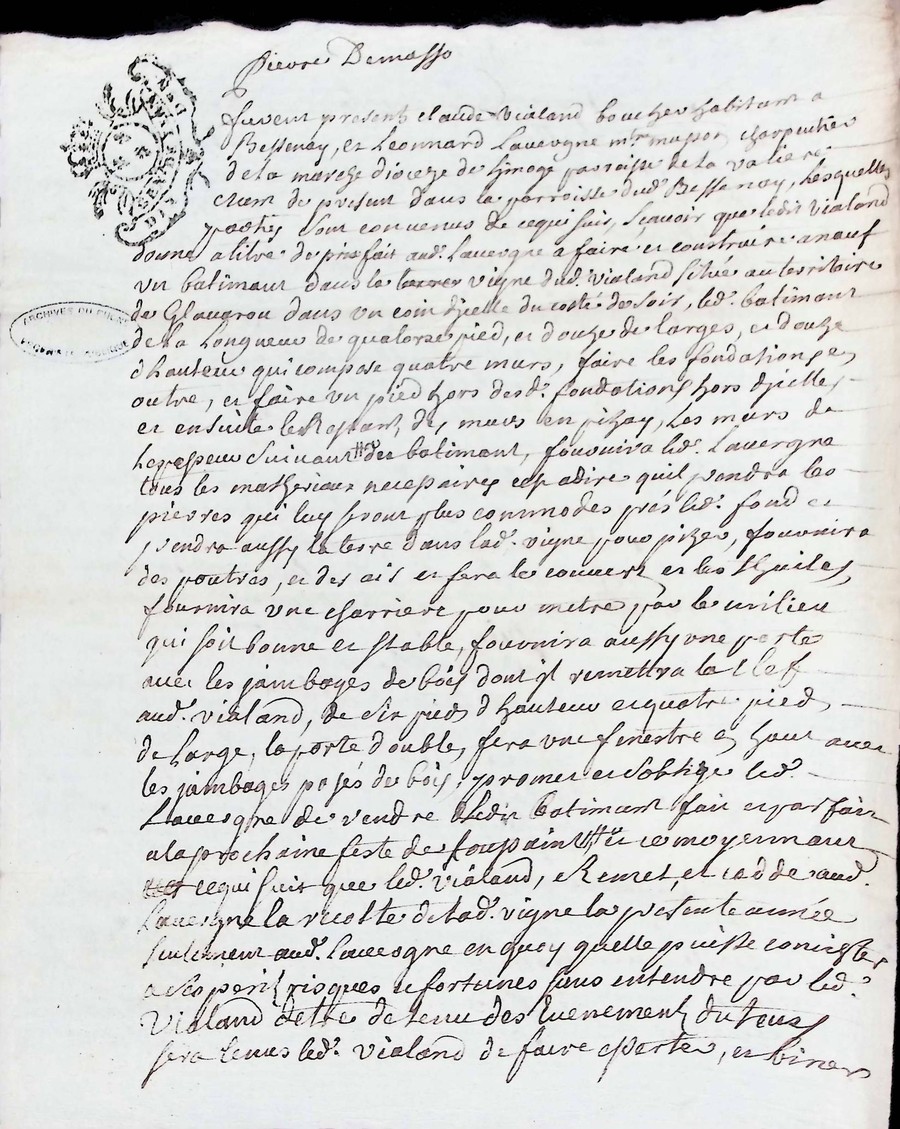 Pierre Demasso
furent present Claude Vialand boucher habitant a
Bessenay, et Leonnard Lauvergne mtre masson charpentier
de la marche dioceze de limoge parroisse de la valiere
etant de present dans la parroisse dud. Bessenay, lesquelles
parties sont convenus de cequi suit, scavoir que ledit vialand
donne atitre de prixfait aud. Lauvergne a faire et construire aneuf
un batimant dans la vigne dud. vialand sitüé au territoire
de Glavarou dans un coin dicelle du coté de soir, led. batimant
de la longueur de quatorse pied, et douze de larges, et douze
dhauteur qui compose quatre murs, faire les fondations en
outre, et faire un pied hors desd. fondations hors dicelles
et ensuite le restant des murs en pizay, les murs de
lespesseur suivant des batimant, fournira led. Lauvergne
tous les matheriaux necessaires cest adire quil prendra les
pierres qui luy seront plus commodes prés led. fond et
prendra aussy la terre dans lad. vigne pour pizer, fournira
des poutres, et des ais et fera le couvert et les thuiles,
fournira une charriere pour metre par le milieu
qui soit bonne et stable, fournira aussy une porte
avec les jambages de bois dont il remettra la Clef
aud. vialand, de six pieds dhauteur et quatre pied
de large, la porte double, fera une fenestre en haut avec
les jambages posés de bois, promet et soblige led.
Lauvergne de rendre ledit batimant fait et parfait
a la prochaine feste de toussaint et ce moyennant
cequi suit que led. vialand, remet, et cedde aud.
Lauvergne la recolte de lad. vigne la presente année
seulement aud. Lauvergne en quoy quelle puisse consister
a ses perils risques et fortunes sans entendre par led.
Vialand detre detenu des Evenements du tems
sera tenus led. vialand de faire, et biner